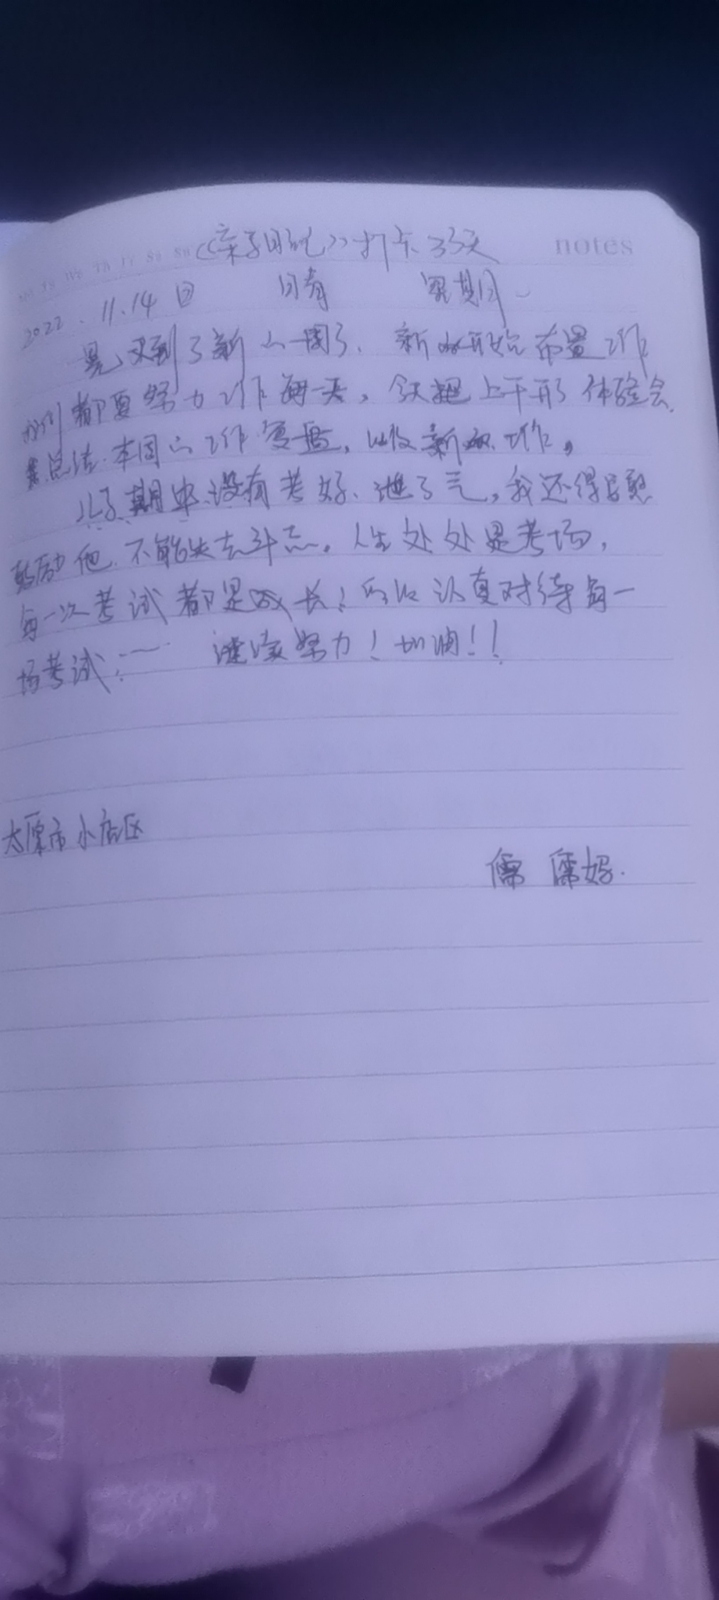 notes
《亲子日记》打卡33天
2022.11.14日 晴 星期一
又到了新的一周了.新的开始布置工作
我们都要努力工作每一天,今天把上午形体验会
总结.本周的工作复盘,以及新的工作。
儿子期中没有考好.泄了气,我还得
鼓励他.不能失去斗志。人生处处是考场,
每一次考试都是成长!所以认真对待每一
场考试!一 继续努力!加油!!
太原市小店区
儒儒妈.